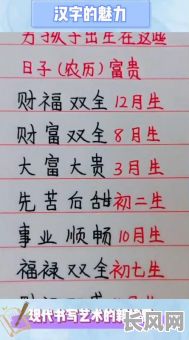 汉字的魅力
日子(农历)富贵
财福双全12月生
财富双全8月生
大富大贵3月生
先苦后甜初二生
事业顺畅10月生
福禄双全初七生
现代书写艺术的
长风网
cffw.net